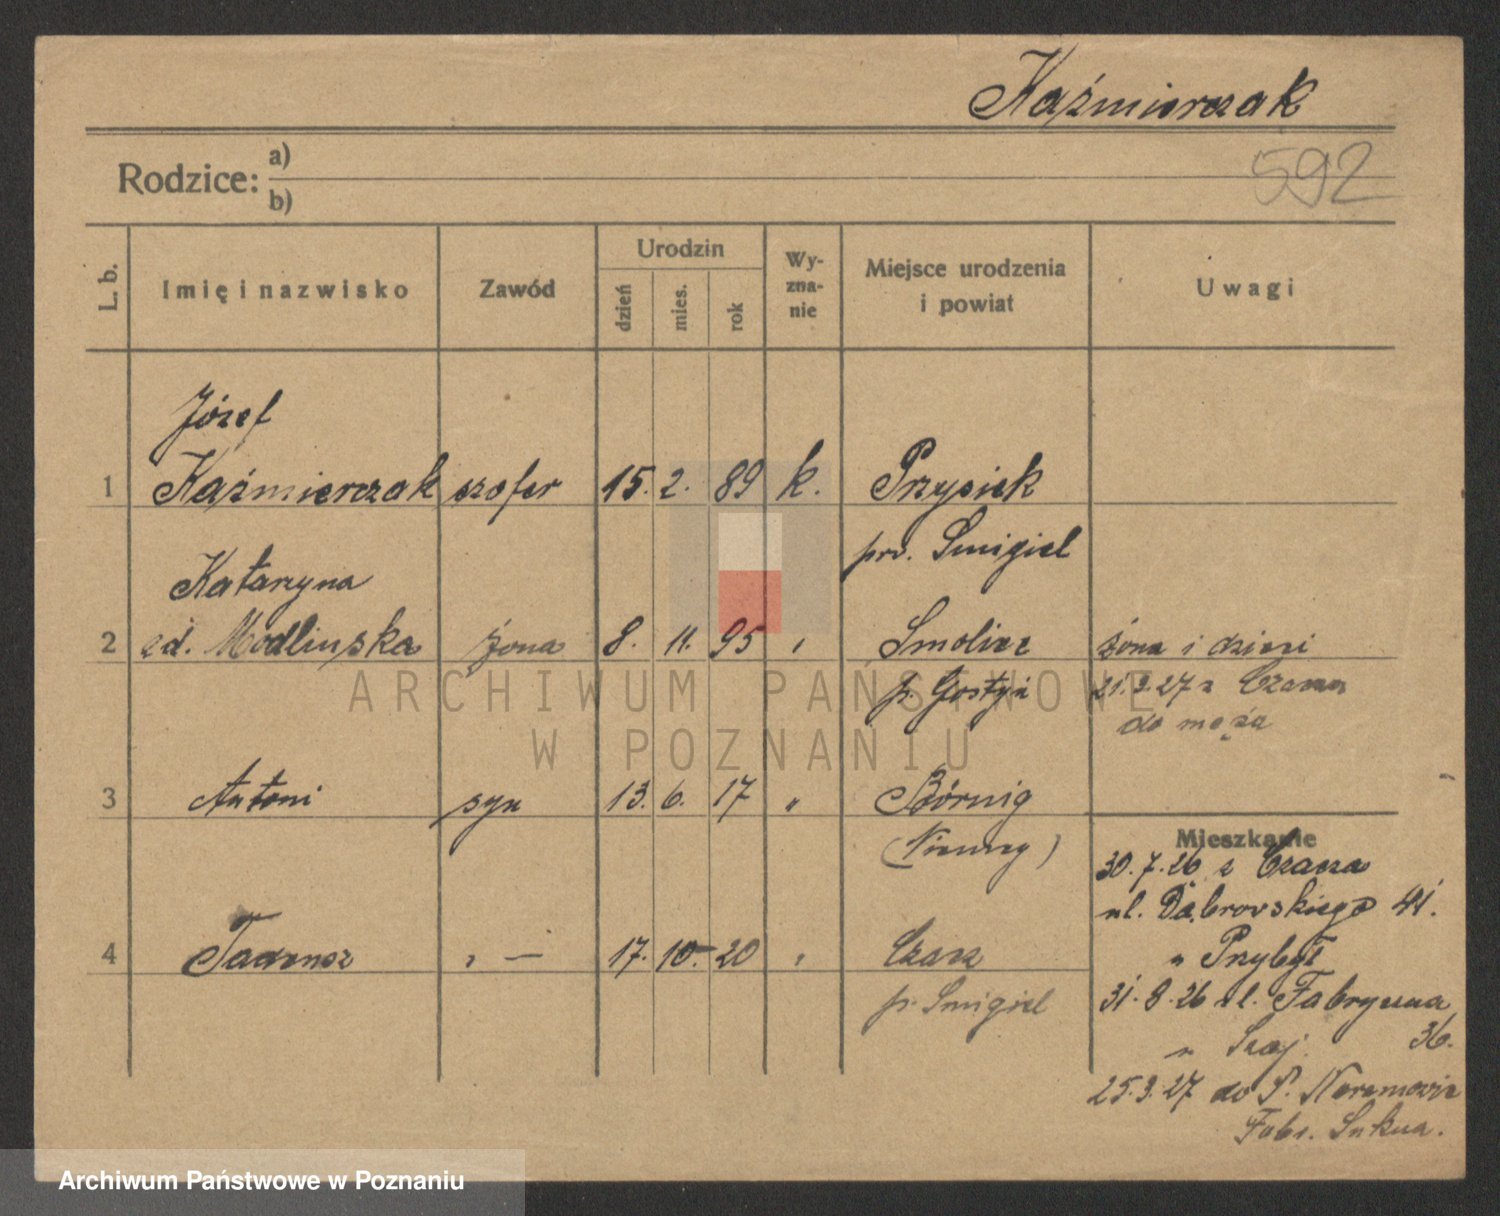 Kaźmierczak
592
Rodzice: a)
b)
L. b.
Imię i nazwisko
Zawód
Urodzin
dzień
mies.
rok
Wy-
zna-
nie
Miejsce urodzenia
i powiat
Uwagi
Józef
1 Kaźmierczak szofer 15. 2. 89 k. Przysiek
pow. Śmigiel
Katarzyna
2 zd. Modlinska żona 8. 11. 95 " Smolice żona i dzieci
p. Gostyń 21.3.27 z Czacza
do męża
3 Antoni syn 13. 6. 17 " Börnig
(Niemcy)
Mieszkanie
30.7.26 z Czacza
ul. Dąbrowskiego 41.
4 Tadeusz " — 17. 10. 20 " Czacz
" Przybył
p. Śmigiel
31.8.26 ul. Fabryczna
36.
25.3.27 do P.
Fabr. Sukna.
ARCHIWUM PAŃSTWOWE
W POZNANIU
Archiwum Państwowe w Poznaniu